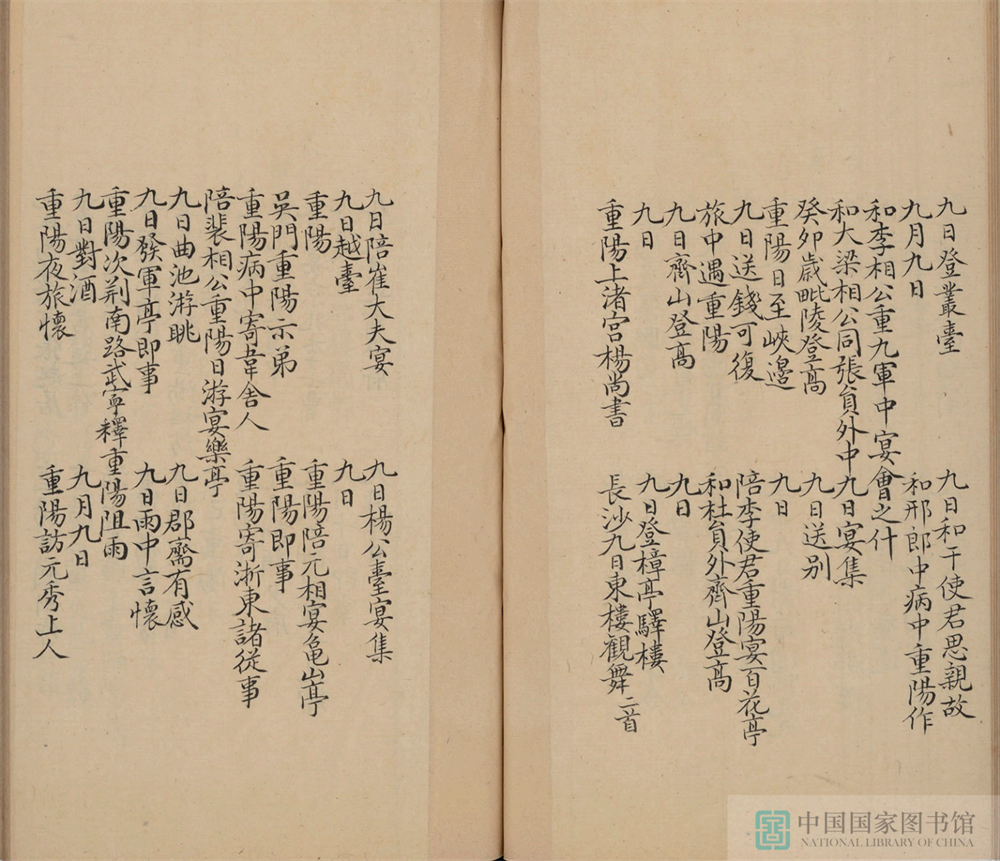 九日登叢臺 九日和于使君思親故
九月九日 和邢郎中病中重陽作
和李相公重九軍中宴會之什
和大梁相公同張員外中九日宴集
癸卯歲毗陵登高 九日送别
重陽日至峽邊 九日
九日送錢可復 陪李使君重陽宴百花亭
旅中遇重陽 和杜員外齊山登高
九日齊山登高 九日
九日 九日登樟亭驛樓
重陽上渚宮楊尚書 長沙九日東樓觀舞二首
九日陪崔大夫宴 九日楊公臺宴集
九日越臺 九日
重陽 重陽陪元相宴龜山亭
吳門重陽示弟 重陽即事
重陽病中寄韋舍人 重陽寄浙東諸從事
陪裴相公重陽日游宴樂亭
九日曲池游眺 九日郡齋有感
九日發軍亭即事 九日雨中言懷
重陽次荆南路武寧釋重陽阻雨
九日對酒 九月九日
重陽夜旅懷 重陽訪元秀上人
中国国家图书馆
NATIONAL LIBRARY OF CHINA